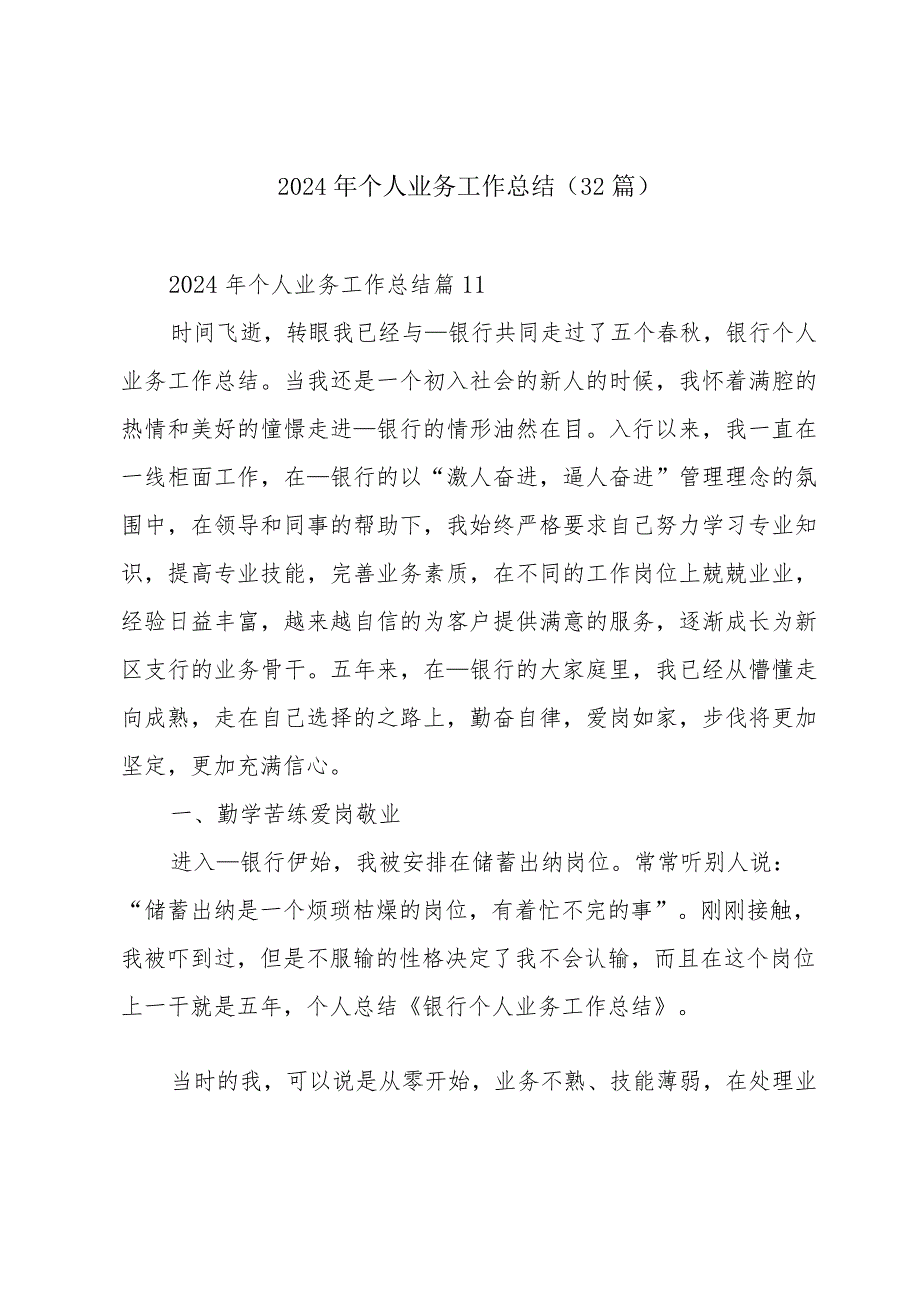 2024 年个人业务工作总结（32 篇）
2024 年个人业务工作总结篇 11
时间飞逝，转眼我已经与—银行共同走过了五个春秋，银行个人
业务工作总结。当我还是一个初入社会的新人的时候，我怀着满腔的
热情和美好的憧憬走进—银行的情形油然在目。入行以来，我一直在
一线柜面工作，在—银行的以“激人奋进，逼人奋进”管理理念的氛
围中，在领导和同事的帮助下，我始终严格要求自己努力学习专业知
识，提高专业技能，完善业务素质，在不同的工作岗位上兢兢业业，
经验日益丰富，越来越自信的为客户提供满意的服务，逐渐成长为新
区支行的业务骨干。五年来，在—银行的大家庭里，我已经从懵懂走
向成熟，走在自己选择的之路上，勤奋自律，爱岗如家，步伐将更加
坚定，更加充满信心。
一、勤学苦练爱岗敬业
进入—银行伊始，我被安排在储蓄出纳岗位。常常听别人说：
“储蓄出纳是一个烦琐枯燥的岗位，有着忙不完的事”。刚刚接触，
我被吓到过，但是不服输的性格决定了我不会认输，而且在这个岗位
上一干就是五年，个人总结《银行个人业务工作总结》。
当时的我，可以说是从零开始，业务不熟、技能薄弱，在处理业